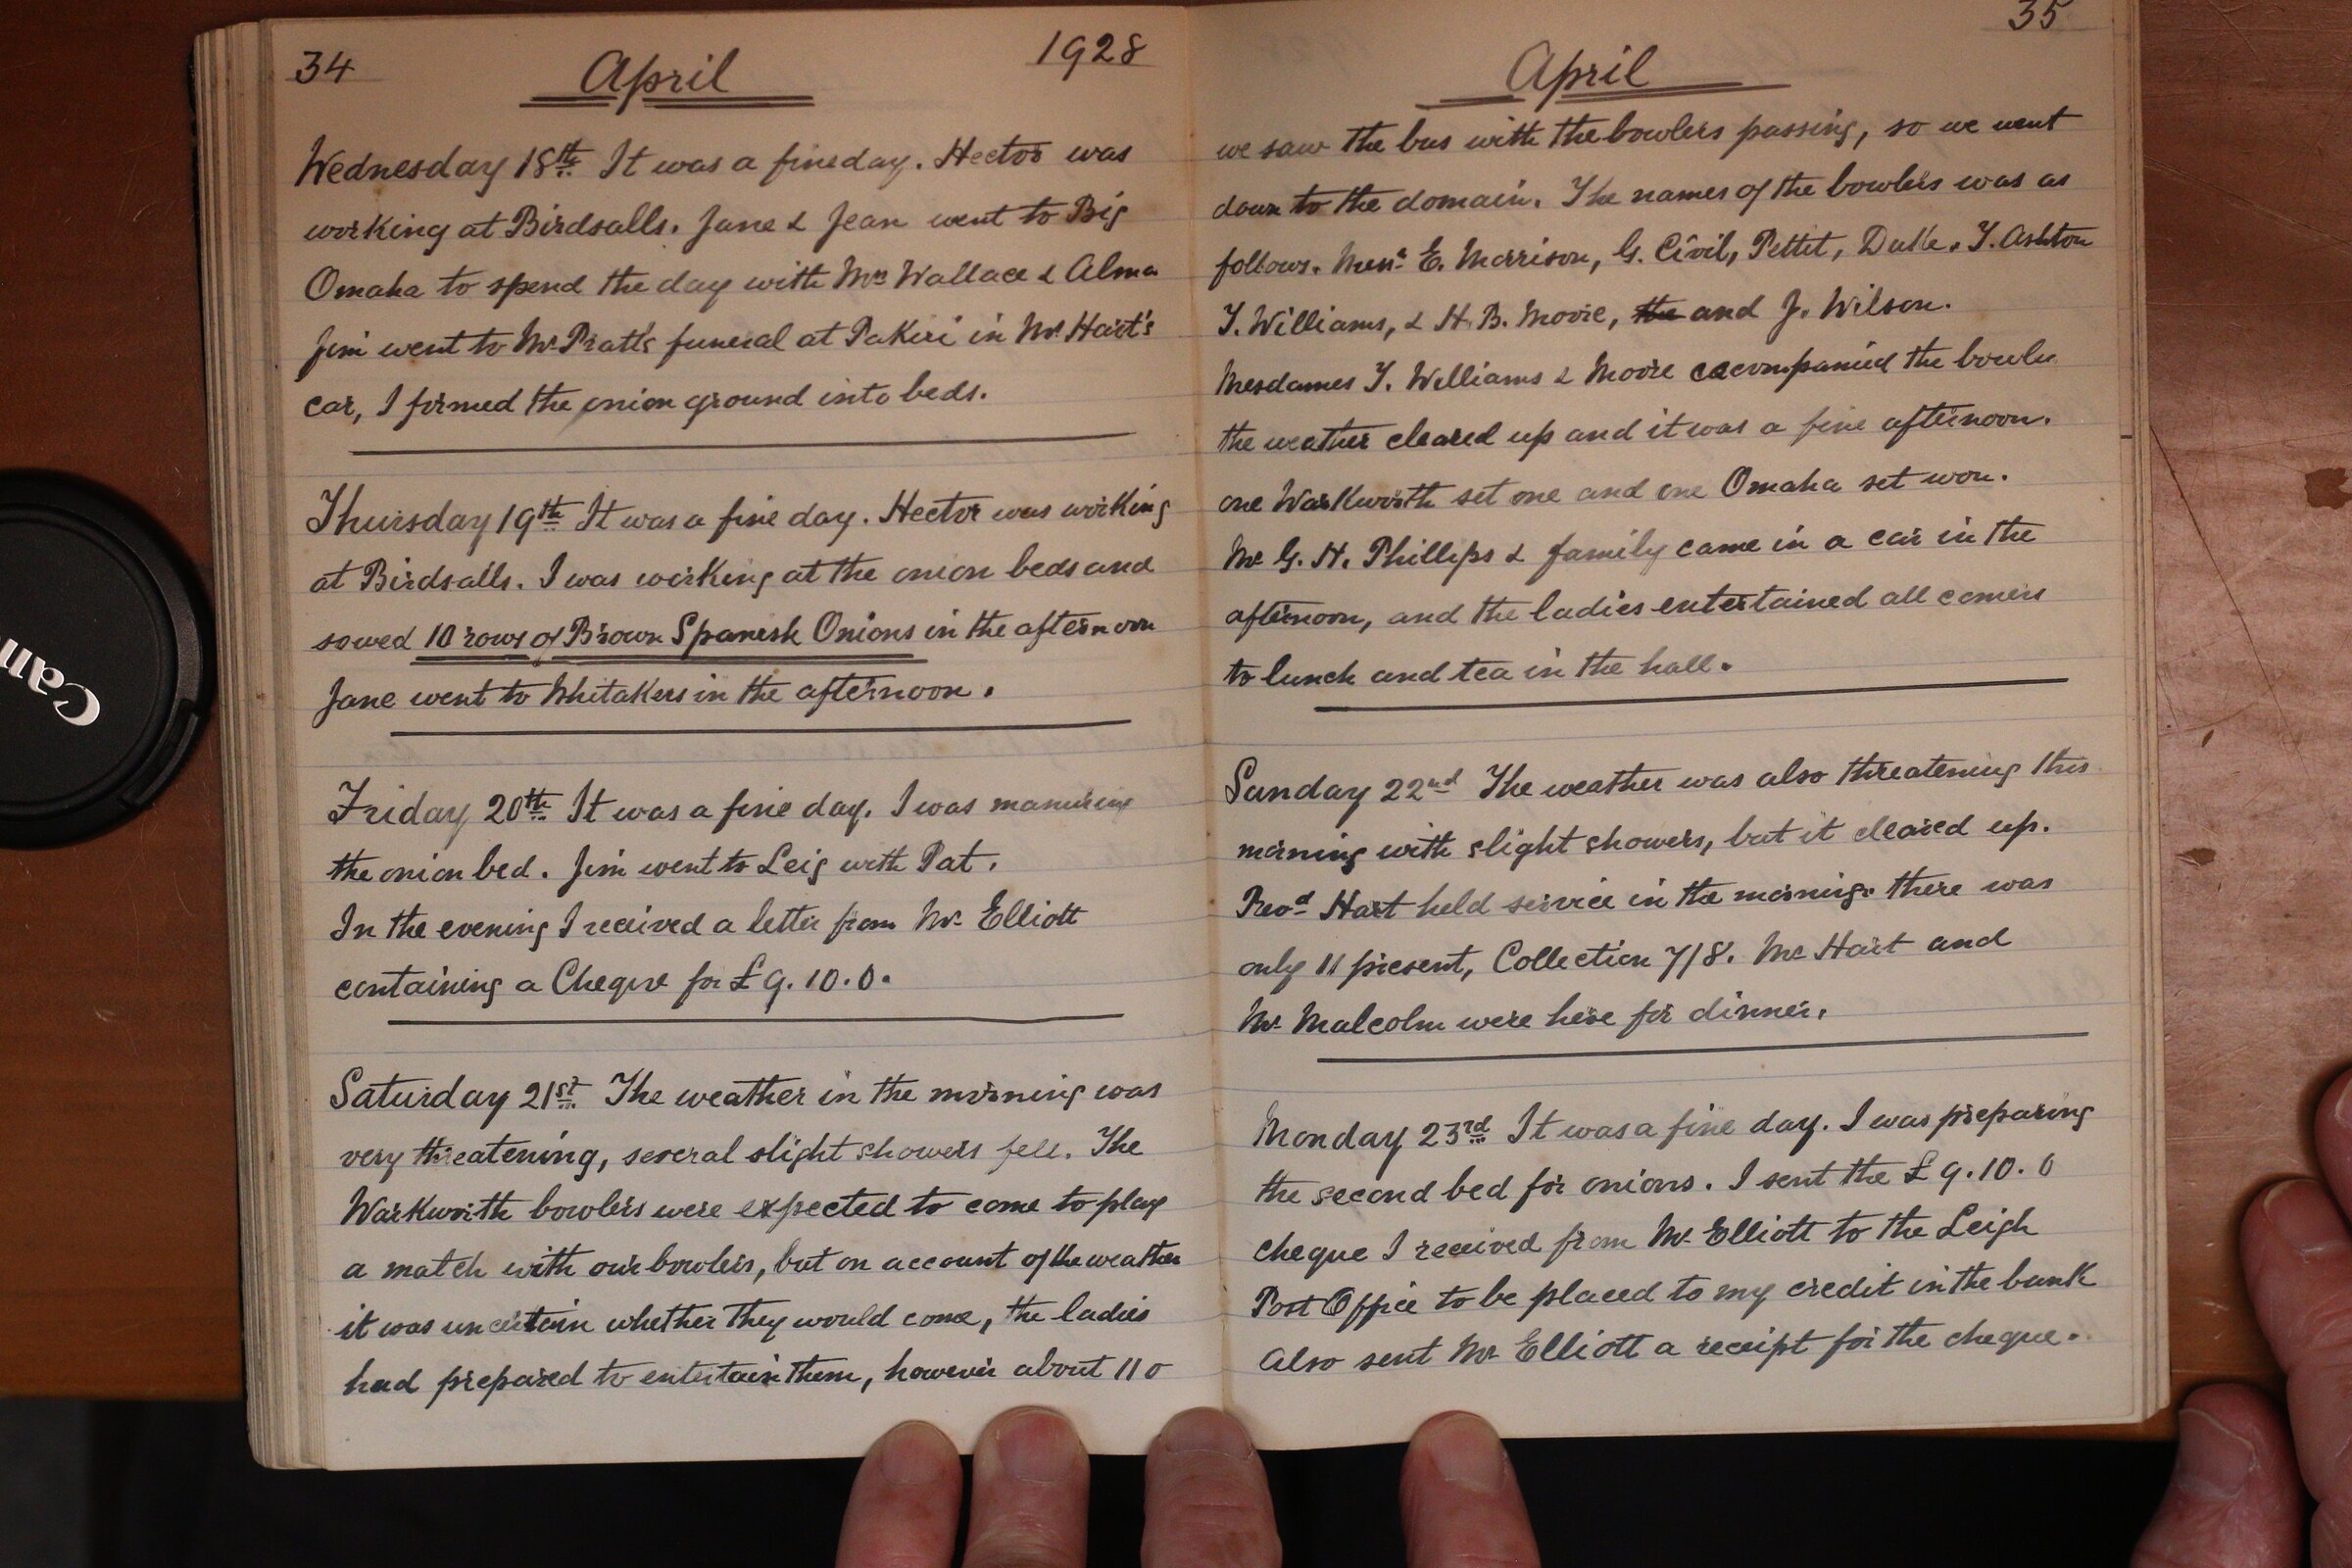 34
April
1928
Wednesday 18th It was a fine day. Hector was
working at Birdsalls. Jane & Jean went to Big
Omaha to spend the day with Mrs Wallace & Alma
Jim went to Mr Pratt's funeral at Pakiri in Mr Hart's
car, I formed the onion ground into beds.
Thursday 19th It was a fine day. Hector was working
at Birdsalls. I was working at the onion beds and
sowed 10 rows of Brown Spanish Onions in the afternoon
Jane went to Whitakers in the afternoon.
Friday 20th It was a fine day. I was manuring
the onion bed. Jim went to Leig with Pat.
In the evening I received a letter from Mr Elliott
containing a Cheque for £9.10.0.
Saturday 21st The weather in the morning was
very threatening, several slight showers fell. The
Warkworth bowlers were expected to come to play
a match with our bowlers, but on account of the weather
it was uncertain whether they would come, the ladies
had prepared to entertain them, however about 11 o
35
April
we saw the bus with the bowlers passing, so we went
down to the domain. The names of the bowlers was as
follows. Mess. E. Morrison, G. Civil, Pettit, Duke. T. Ashton
T. Williams, & H. B. Moore, the and J. Wilson.
Mesdames T. Williams & Moore accompanied the bowle
the weather cleared up and it was a fine afternoon.
one Warkworth set one and one Omaha set won.
Mr G. H. Phillips & family came in a car in the
afternoon, and the ladies entertained all comers
to lunch and tea in the hall.
Sunday 22nd The weather was also threatening this
morning with slight showers, but it cleared up.
Revd Hart held service in the morning. there was
only 11 present, Collection 7/8. Mr Hart and
Mr Malcolm were here for dinner.
Monday 23rd It was a fine day. I was preparing
the second bed for onions. I sent the £9.10.0
cheque I received from Mr Elliott to the Leigh
Post Office to be placed to my credit in the bank
Also sent Mr Elliott a receipt for the cheque.
Can